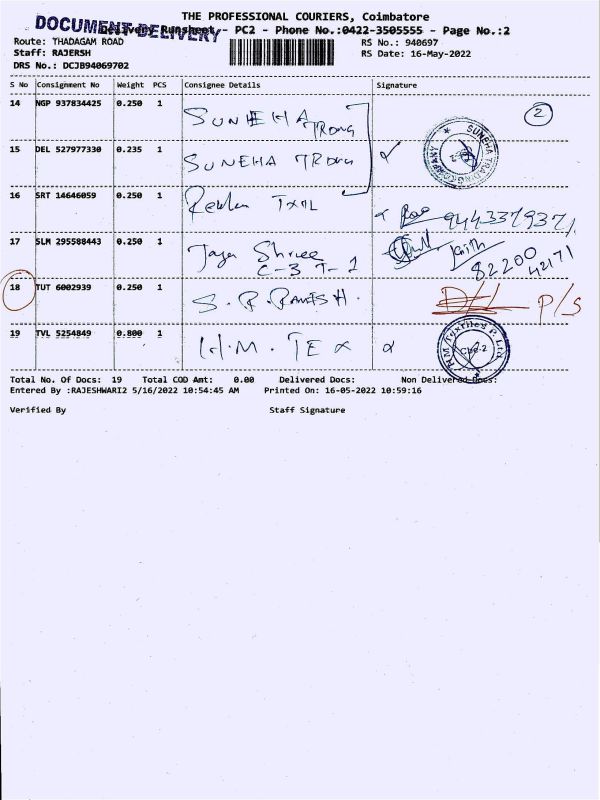 THE PROFESSIONAL COURIERS, Coimbatore
DOCUMENT DELIVERY
Delivery Runsheet - PC2 - Phone No.:0422-3505555 - Page No.:2
Route: THADAGAM ROAD
RS No.: 940697
Staff: RAJERSH
RS Date: 16-May-2022
DRS No.: DCJB94069702
S No Consignment No Weight PCS Consignee Details Signature
14 NGP 937834425 0.250 1 SUNEHA 2
15 DEL 527977330 0.235 1 SUNEHA
SUNEHA TRADING COMPANY
16 SRT 14646059 0.250 1 9443379371
17 SLM 295588443 0.250 1 Jaya Shree
C-3 T-1
82200
42171
18 TUT 6002939 0.250 1 S.P. RAMESH. P/S
19 TVL 5254849 0.800 1 H.M. TEX
Total No. Of Docs: 19 Total COD Amt: 0.00 Delivered Docs: Non Delivered Docs:
Entered By :RAJESHWARI2 5/16/2022 10:54:45 AM Printed On: 16-05-2022 10:59:16
Verified By Staff Signature